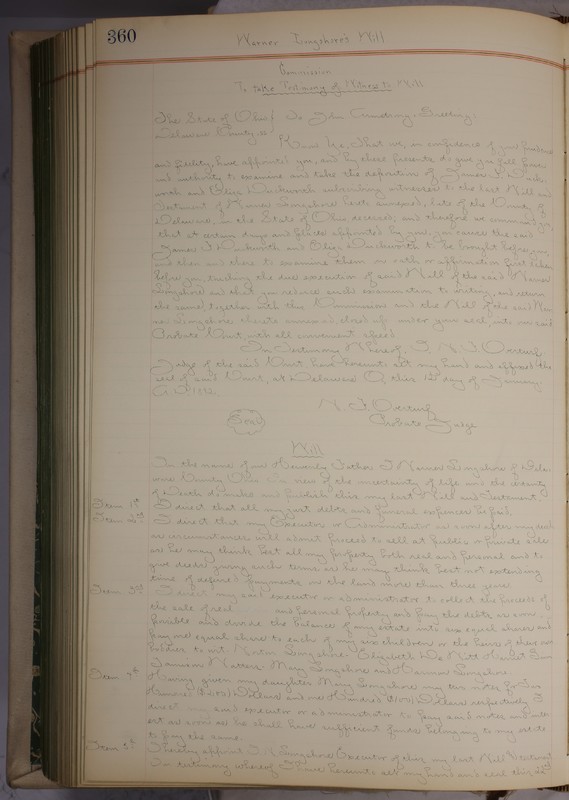 360
Warner Longshore's Will
Commission
To take Testimony of Witness to Will
The State of Ohio } To John Armstrong, Greeting:
Delaware County, ss
Know Ye, That we, in confidence of your prudence
and fidelity, have appointed you, and by these presents do give you full power
and authority to examine and take the deposition of James P. Duck-
worth and Eliza Duckworth subscribing witnesses to the last Will and
Testament of Warner Longshore hereto annexed, late of the County of
Delaware, in the State of Ohio deceased; and therefore we command you
that at certain days and places appointed by you, you cause the said
James P. Duckworth and Eliza Duckworth to be brought before you,
and then and there to examine them on oath or affirmation first taken
before you, touching the due execution of said Will of the said Warner
Longshore, and that you reduce such examination to writing, and return
the same, together with this Commission and the Will of the said War-
ner Longshore thereto annexed, closed up under your seal, into our said
Probate Court, with all convenient speed.
In Testimony Whereof, I,
Judge of the said Court, have hereunto set my hand and affixed the
seal of said Court, at Delaware O. this 12th day of January
A.D. 1892.
Seal
Probate Judge
Will
In the name of our Heavenly Father I Warner Longshore of Dela-
ware County Ohio in view of the uncertainty of life and the certainty
of Death do make and publish this my last Will and Testament.
Item 1st I direct that all my just debts and funeral expenses be paid.
Item 2nd I direct that my Executor or Administrator as soon after my death
as circumstances will admit proceed to sell at public or private sale
as he may think best all my property both real and personal and to
give deeds, giving such terms as he may think best not extending
time of deferred payments on the land more than three years.
Item 3rd I direct my said executor or administrator to collect the proceeds of
the sale of real and personal property and pay the debts as soon as
possible and divide the balance of my estate into six equal shares and
pay one equal share to each of my six children or the heirs of their own
bodies to wit: Longshore, Elizabeth De Witt, Harriet
Mary Longshore and Longshore.
Item 4th Having given my daughter Mary Longshore my two notes for Two
Hundred ($200) Dollars and one Hundred ($100) Dollars respectively I
direct my said executor or administrator to pay said notes and inter-
est as soon as he shall have sufficient funds belonging to my estate
to pay the same.
Item 5th I hereby appoint Longshore Executor of this my last Will & testament
In testimony whereof I have hereunto set my hand and seal this 22nd